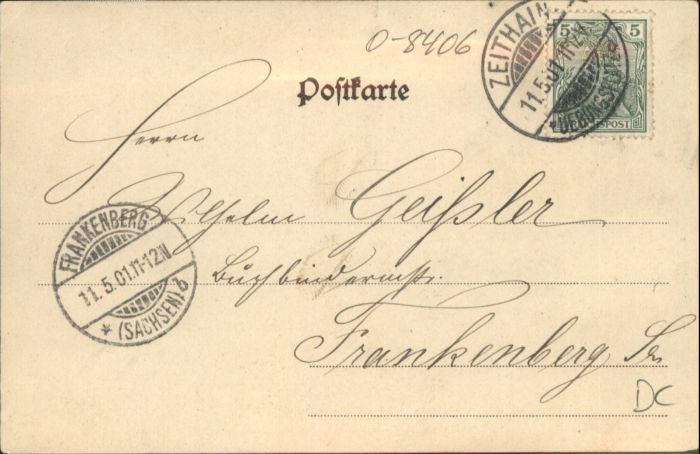 O-8406
Postkarte
ZEITHAIN
11.5.01.11-12V.
5 5
REICHSPOST
Herrn
Wilhelm Geißler
Buchbindermstr.
Frankenberg Sa
FRANKENBERG
11.5.01.11-12N
* (SACHSEN) b
DC